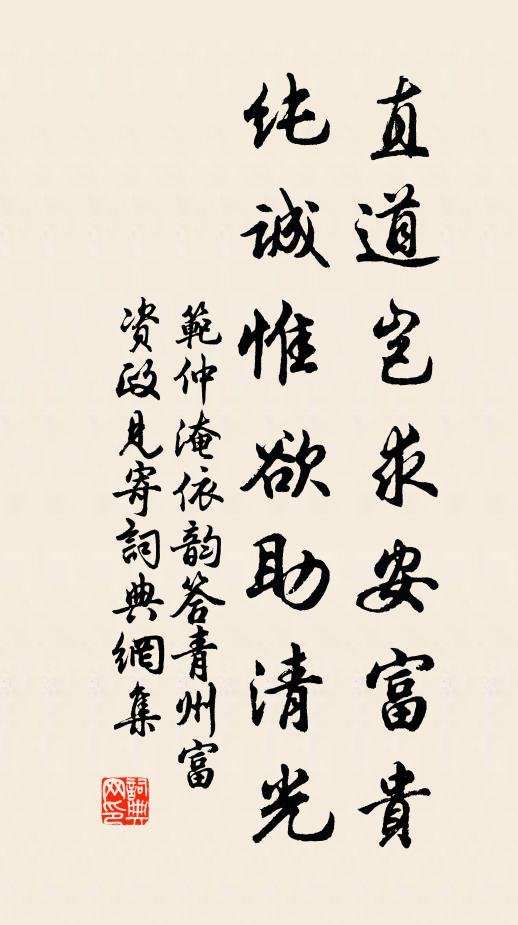 直道豈求安富貴
純誠惟欲助清光
範仲淹依韵答青州富
資政見寄詞典網集
詞典网印